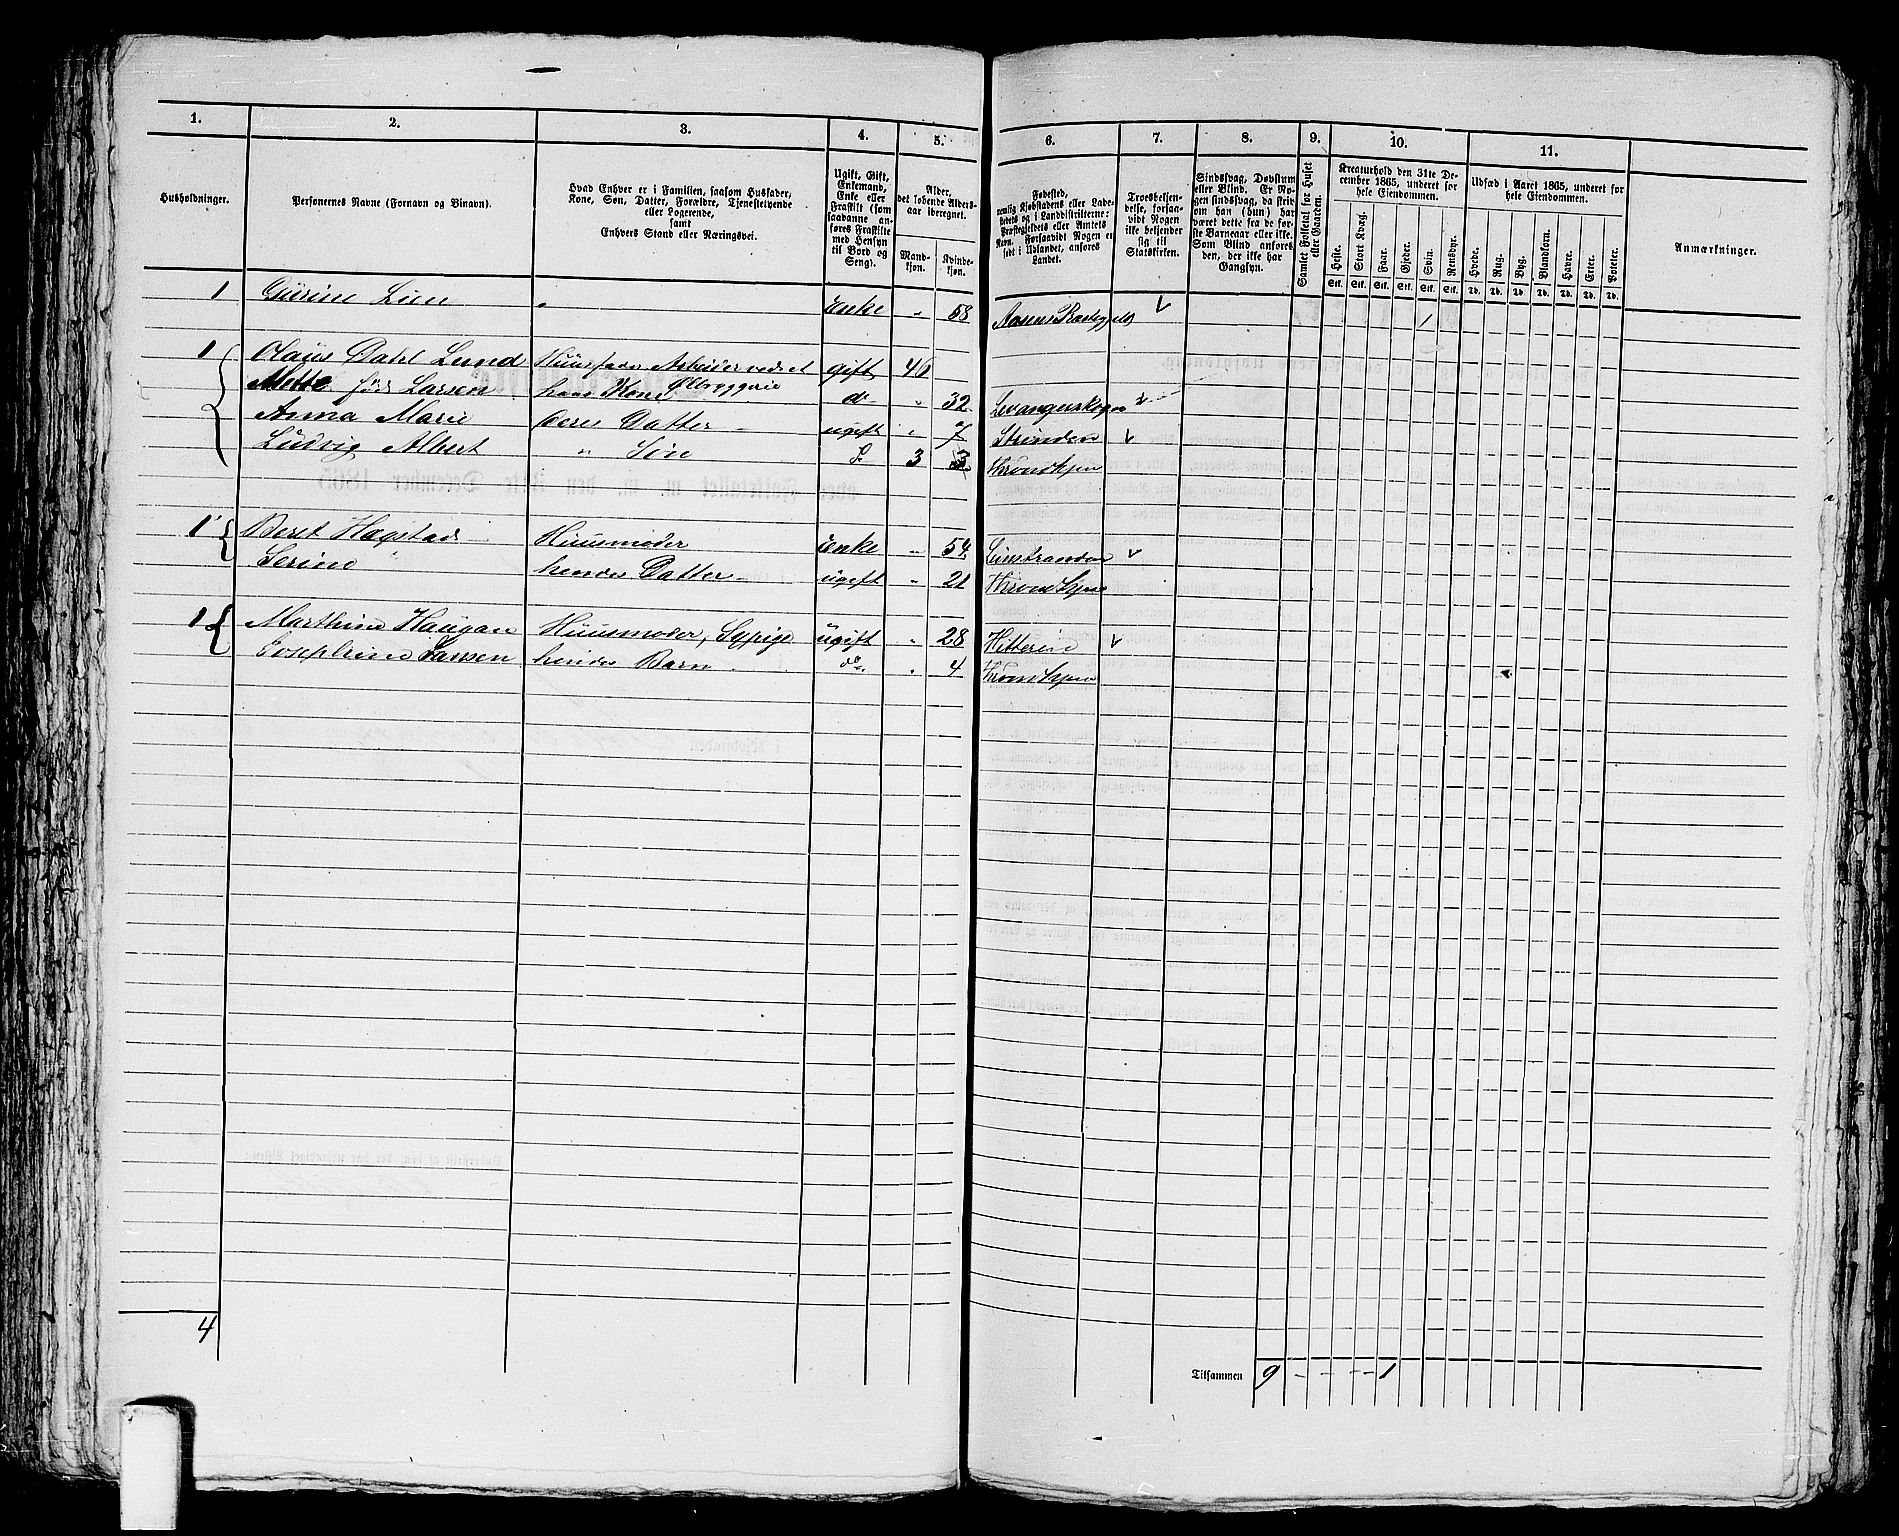 1. 2. 3. 4. 5. 6. 7. 8. 9. 10. 11.
Husholdninger.
Personernes Navne (Fornavn og Tilnavn).
Hvad Enhver er i Familien, saasom Husfader, Kone, Søn, Datter, Forældre, Tjenestetyende eller Logerende, samt Enhvers Stand eller Næringsvei.
Ugift, Gift, Enkemand, Enke eller Fraskilt (som saadanne anføres Fraskilte med Hensyn til Bord og Seng).
Alder, det løbende Aldersaar iberegnet.
Mandkjøn. Kvindekjøn.
Fødested, nemlig Kjøbstadens eller Ladestedets og i Landdistrikterne: Præstegjeldets eller Amtets Navn. Forsaavidt Nogen er født i Udlandet, anføres Landet.
Troesbekjendelse, forsaavidt Nogen ikke bekjender sig til Statskirken.
Sindssvag, Døvstum eller Blind. Er Nogen sindssvag, da skrives om han (hun) har været dette fra de første Barneaar eller ikke. Som Blind anføres den, der ikke har Gangsyn.
Samlet Folketal for Huset eller Gaarden.
Kreaturhold den 31te December 1865, underet for hele Eiendommen.
Heste. Stort Kvæg. Faar. Gjeder. Svin. Rensdyr.
Stk. Stk. Stk. Stk. Stk. Stk.
Udsæd i Aaret 1865, underet for hele Eiendommen.
Hvede. Rug. Byg. Blandkorn. Havre. Erter. Poteter.
Td. Td. Td. Td. Td. Td. Td.
Anmærkninger.
1 Gurine Lien " Enke " 58 Aasens Præstegjeld 1
1 Olaus Dahl Lund Huusfader Arbeider ved et Ølbryggerie gift 40
Mette født Larsen hans Kone do " 32 Levangerskogn
Anna Marie deres Datter ugift " 7 Strinden
Ludvig Albert " Søn 3 Throndhjem
1 Beret Hagstad Huusmoder Enke " 54 Leinstranden
Serine " hendes Datter ugift " 21 Throndhjem
1 Marthine Haugan Huusmoder, Sypige ugift " 28 Hitteren
Josephine Larsen hendes Barn do " 4 Throndhjem
4
Tilsammen 9 - - - - 1